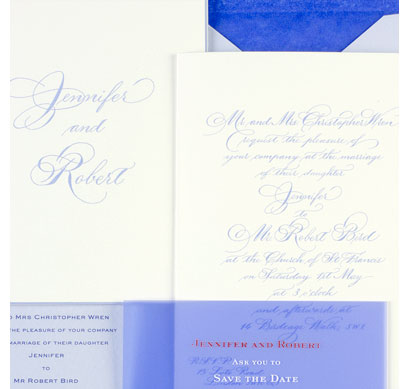 Jennifer
and
Robert
Mr and Mrs Christopher Wren
request the pleasure of
your company at the marriage
of their daughter
Jennifer
to
Mr Robert Bird
at the Church of St Frances
on Saturday 1st May
at 3 o'clock
and afterwards at
16 Birdcage Walk, SW1
D MRS CHRISTOPHER WREN
THE PLEASURE OF YOUR COMPANY
MARRIAGE OF THEIR DAUGHTER
JENNIFER
TO
MR ROBERT BIRD
JENNIFER AND ROBERT
ASK YOU TO
SAVE THE DATE